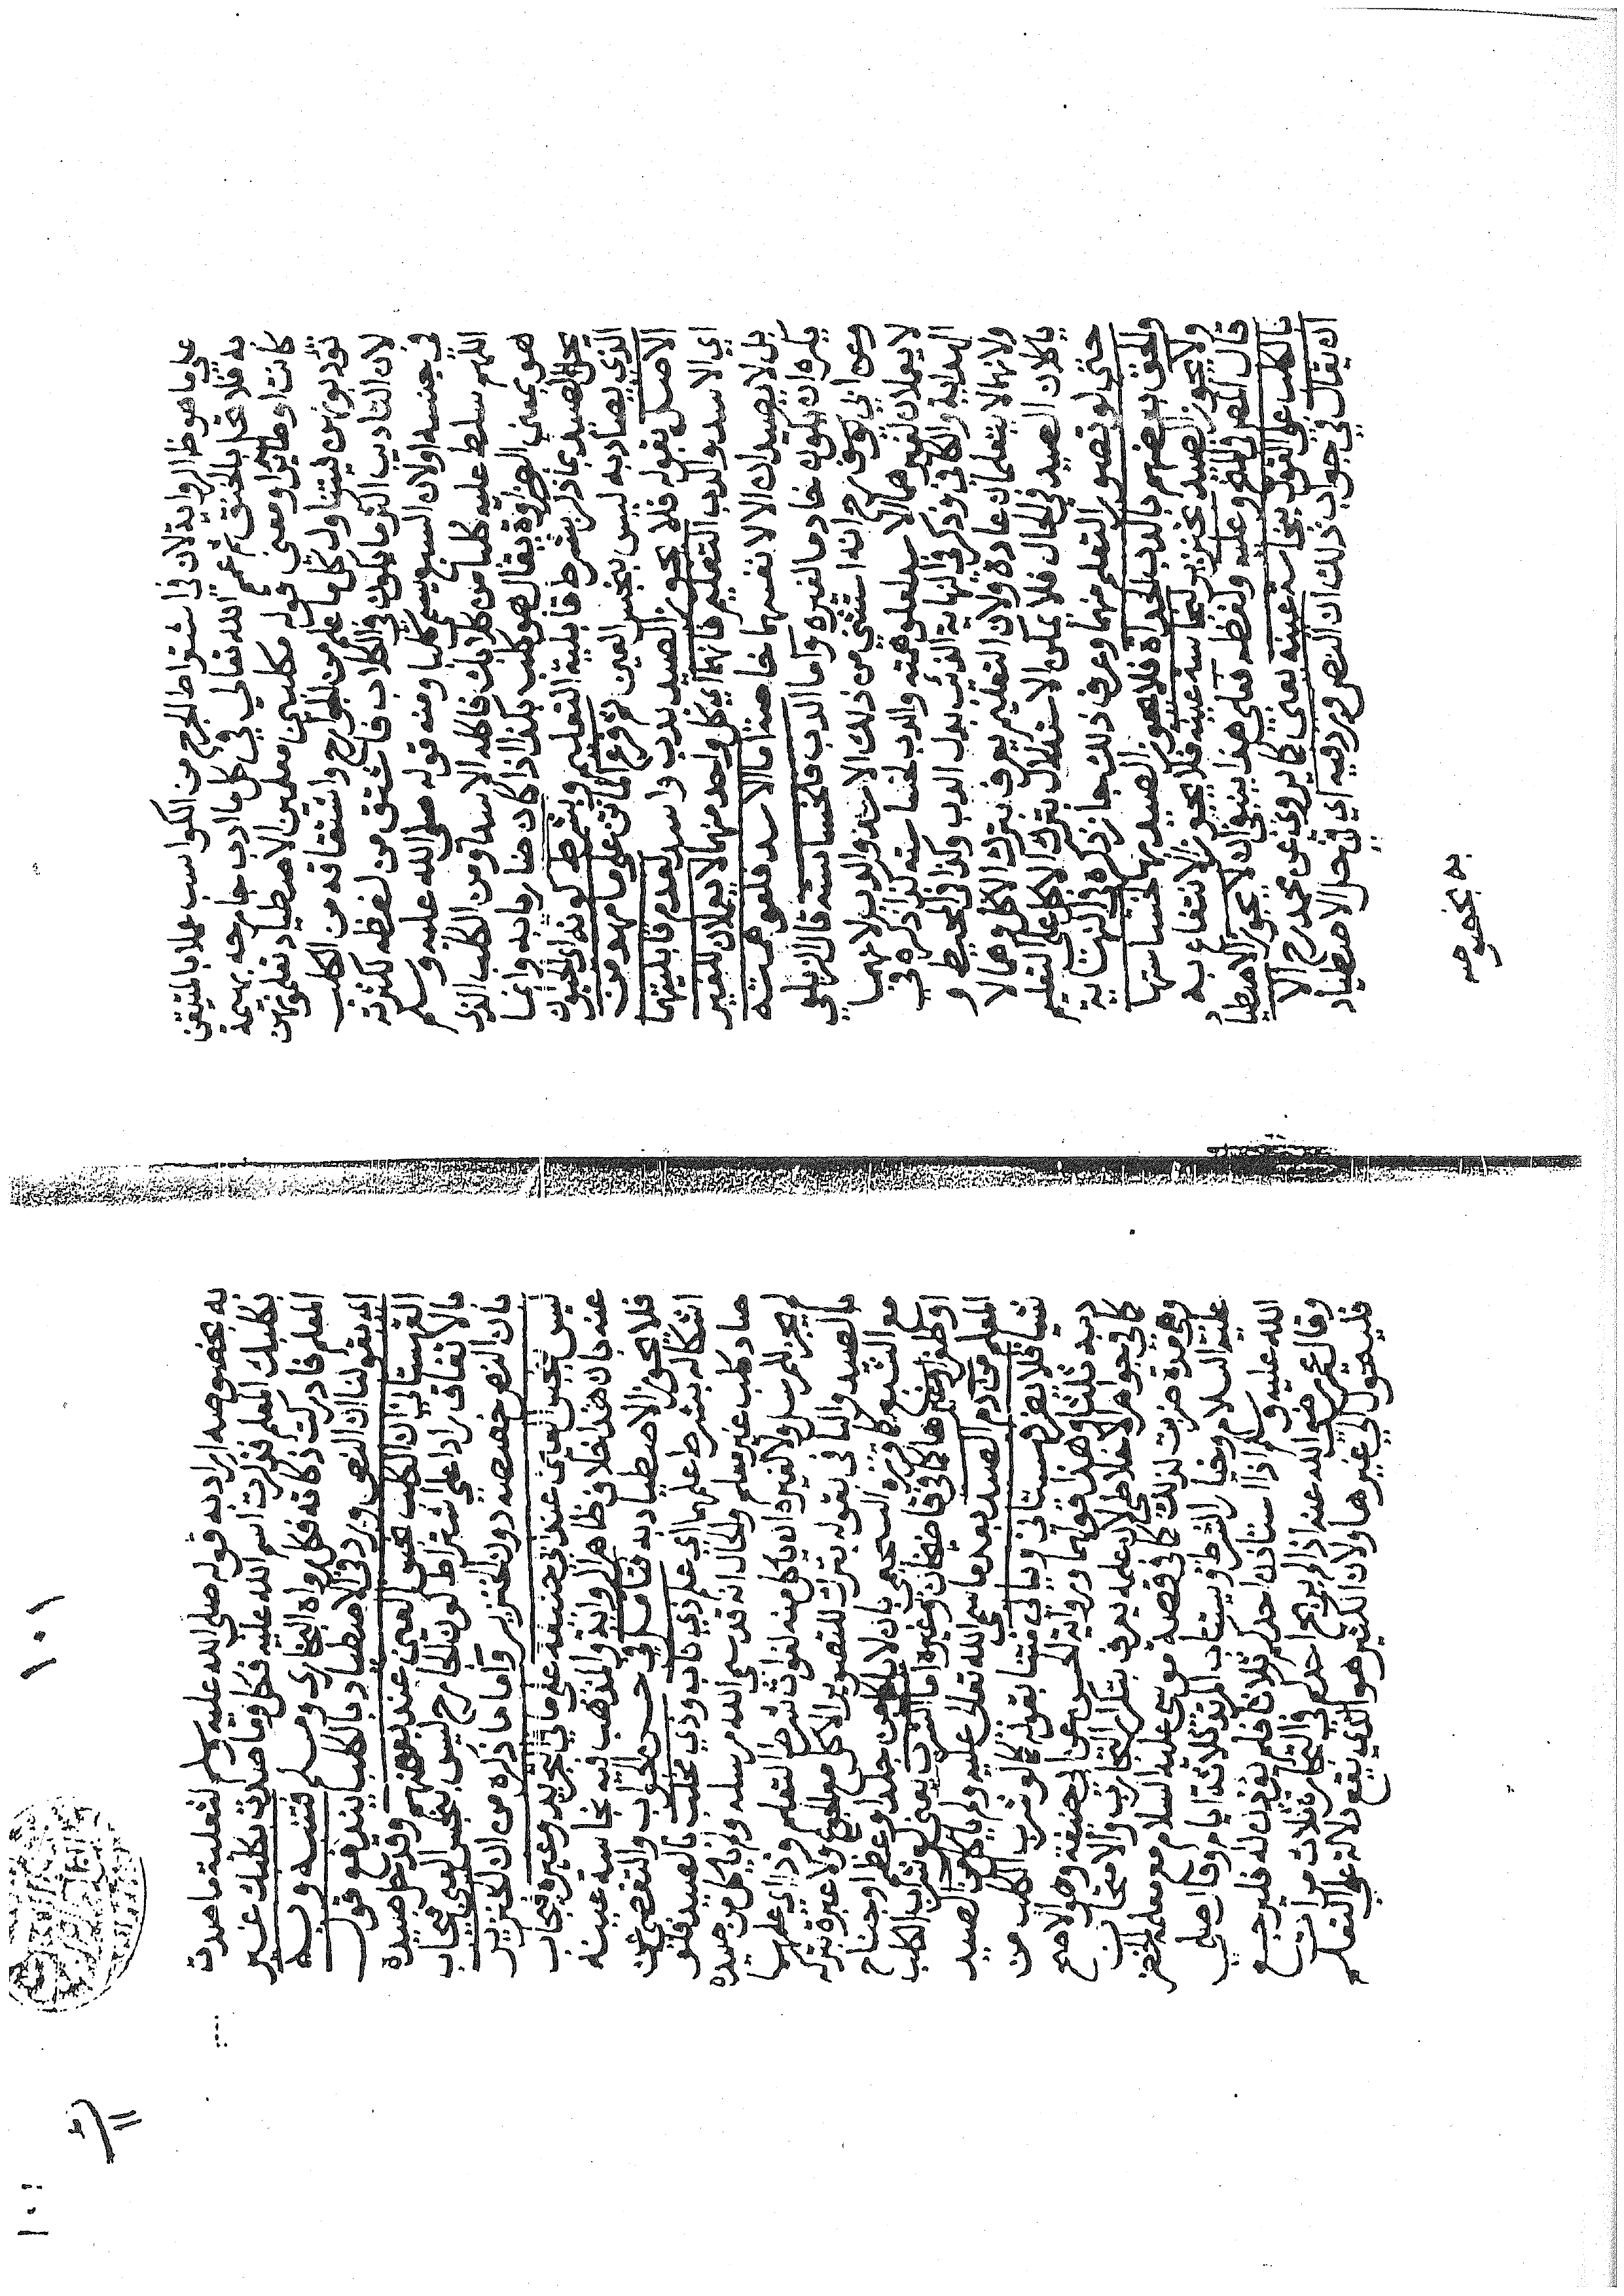 علي ما هو ظاهر الرواية لان في اشتراط الجرح من الكواسب عملا بالمتيقن
به فلا يحل بالخنق ثم عمم الله تعالي في كل ما ادب جارحه بهيمة
كانت او طايرا ومعني قوله مكلبين معلمين الاصطياد تعلمونهن
تؤدبونهن فيتناول كل ما علم من الجوارح واشتقاقه من الكلب
لان التاديب اكثر ما يكون في الكلاب فاشتق من لفظه لكثرته
في جنسه اولان السبع يسمي كلبا ومنه قوله صلي الله عليه وسلم
اللهم سلط عليه كلبا من كلابك فاكله الاسد او من الكلب الذي
هو بمعني الضراوة يقال هو كلب بكذا اذا كان ضاريا به وانما
يحل الصيد بما ذكر بشرط قابلية التعليم وبشرط كونه اي الحيوان
الذي يصاد به ليس بنجس العين ثم فرع الماتن علي ما مهد من
الاصل بقوله فلا يجوز الصيد بدب واسد لعدم قابليتهما
اي الاسد والدب التعليم فانهما اي كل واحد منهما لا يعملان للغير
بل لا يصيدان الا لانفسهما خاصة اما الاسد فلعلو همته
يكره ان يكون خادما لغيره واما الدب فلخساسته قال الزيلعي
وعن ابي يوسف رح انه استثني من ذلك الاسد والدب لانهما
لا يعملان لغيرهما الاسد لعلو همته والدب لخساسته كذا ذكره في
الهداية والكافي وذكر في النهاية الذئب بدل الدب وكذا في المحيط و
ولانهما لا يتعلمان عادة ولان التعليم يعرف بترك الاكل وهما لا
ياكلان الصيد في الحال فلا يمكن الاستدلال بترك الاكل علي التعليم
حتي لو تصور التعلم منهما وعرف ذلك جاز ذكره في النهاية
والحق بعضهم بالدب الحدأة فلا يجوز الصيد بها لخساستها
ولا يجوز الصيد بخنزير لنجاسة عينه فلا يجوز الانتفاع به
قال المصر في المنح وعليه ولفظه فعلي هذا ينبغي ان لا يجوز الاصطياد
بالكلب علي القول بنجاسة عينه يعني كما يروي عن محمد رح الا
ان يقال في جواب ذلك ان النص ورد فيه اي في حل الاصطياد
به بخصوصه
به بخصوصه اراد به قوله صلي الله عليه وسلم لثعلبة ما صدت
بكلبك المعلم فذكرت اسم الله عليه فكل وما صدت بكلبك غير
المعلم فادركت ذكاته فكل رواه البخاري ومسلم فتنبه وبه
اي بقولنا ان النص ورد في الاصطياد بالكلب يندفع قول
القهستاني ان الكلب نجس العين عند بعضهم وقد حل صيده
بالاتفاق ايرادا علي اشتراط كون الجارح ليس بنجس العين فيجاب
بان النص خصصه دون الخنزير واما ما ذكره من ان الخنزير
ليس بنجس العين عند ابي حنيفة علي ما في التجريد وغيره فيجاب
عنه بان هذا خلاف ظاهر الرواية والمذهب فيه نجاسة عينه
فلا يجوز الاصطياد به فتامل في حسن الجواب والتقصي عن
اشكاله بشرط علمهما اي علم ذي ناب وذي مخلب بالصيد فلو
صاد كلب غير معلم والحال انه قد سمي الله مرسله ولم ياكل من صيده
لم يجز للمرسل ولا لغيره ان ياكل منه لفوت شرط التعلم وذا اي علمها
بالصيد والباز بقوله بترك للتصوير الاكل مع الجوع ولا عبرة بتركه
مع الشبع كما قرره السحيمي بان لا ياكل من جلد او عظم او جناح
او ظفر او غيرها كما في قاضيخان وغيره اما الشرب يعني لو شرب الكلب
المعلم من دم الصيد بعدما سمي الله تعالي عليه ولم ياكل من الصيد
شيئا فلا يضر قهستاني وياتي متنا بقوله كما لو شرب الكلب من
دمه ثلثا وهذا قولهما ورواية الحسن عن ابي حنيفة وهو الاصح
كما في جواهر الاخلاطي لان علمه يعرف بتكرار التجارب والامتحان
وهي مدة ضربت لذلك كما في قصة موسي عليه السلام مع معلمه الخضر
عليه السلام وخيار الشرط ويستتاب المرتد ثلاثة ايام وقال صلي
الله عليه وسلم اذا استاذن احدكم ثلاثا فلم يؤذن له فليرجع
وقال عمر رضي الله عنه اذا لم يربح احدكم في التجارة ثلاث مرات
فليتحول الي غيرها ولان الكثير هو الذي يقع دلالة علي التعلم
١٠١